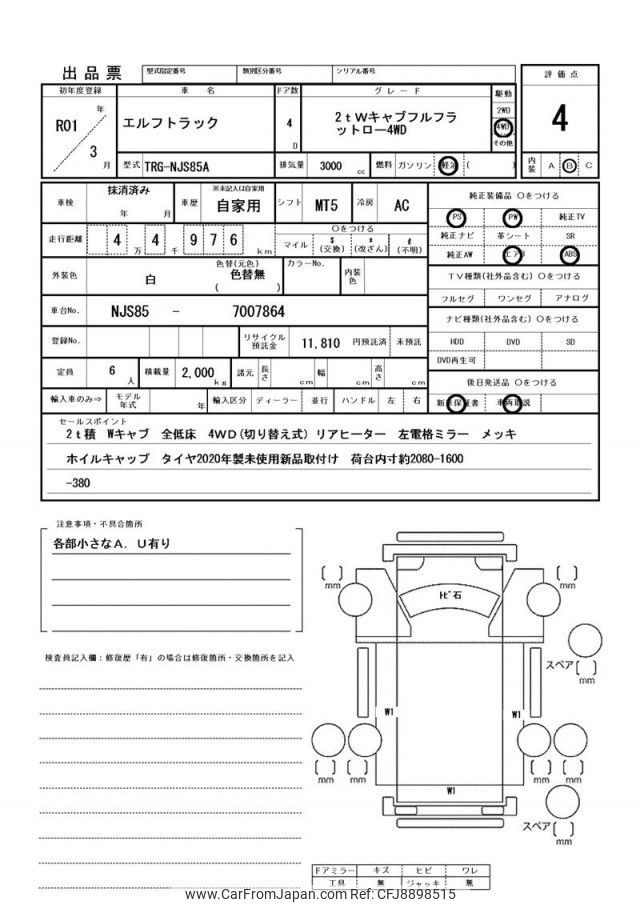 出品票 型式指定番号 類別区分番号 シリアル番号
初年度登録 車名 ドア数 グレード 駆動 評価点
R01 年 3 月 エルフトラック 4 D 2tWキャブフルフラ
ットロー4WD
2WD
4WD
その他
4
型式 TRG-NJS85A 排気量 3000 cc 燃料 ガソリン 軽油 ( ) 内装 A B C
車検 抹消済み 年 月 車歴 ※未記入は自家用 自家用 シフト MT5 冷房 AC
純正装備品 Oをつける
PS PW 純正TV
純正ナビ 革シート SR
純正AW エアB ABS
走行距離 4 万 4 千 9 7 6 km
Oをつける
マイル $(交換) *(改ざん) #(不明)
外装色 白 色替(元色) 色替無 ( ) カラーNo. 内装色
TV種類(社外品含む) Oをつける
フルセグ ワンセグ アナログ
車台No. NJS85 - 7007864
ナビ種類(社外品含む) Oをつける
HDD DVD SD
DVD再生可
登録No. リサイクル預託金 11,810 円預託済 未預託
定員 6 人 積載量 2,000 kg 諸元 長さ cm 幅 cm 高さ cm
後日発送品 Oをつける
新車保証書 車両取説
輸入車のみ⇒ モデル年式 年 輸入区分 ディーラー 並行 ハンドル 左 右
セールスポイント
2t積 Wキャブ 全低床 4WD(切り替え式) リアヒーター 左電格ミラー メッキ
ホイルキャップ タイヤ2020年製未使用新品取付け 荷台内寸約2080-1600
-380
注意事項・不具合箇所
各部小さなA．U有り
検査員記入欄：修復歴「有」の場合は修復箇所・交換箇所を記入
[ ] mm
[ ] mm
ﾄﾋﾞ石
スペア [ ] mm
W1
W1
[ ] mm
[ ] mm
[ ] mm
[ ] mm
W1
スペア [ ] mm
ドアミラー キズ ヒビ ワレ
工具 無 ジャッキ 無
www.CarFromJapan.com Ref:CFJ8898515